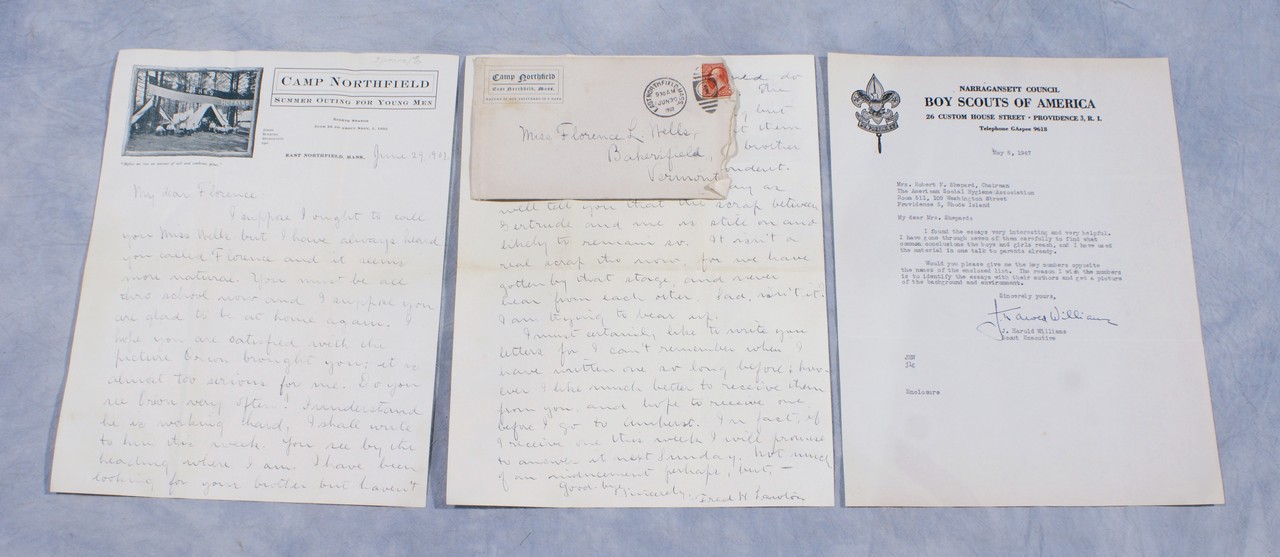 CAMP NORTHFIELD
SUMMER OUTING FOR YOUNG MEN
EAST NORTHFIELD, MASS. June 29, 190
My dear Florence:
I suppose I ought to call
you Miss Wells but I have always heard
you called Florence and it seems
more natural. You must be all
thro school now and I suppose you
are glad to be at home again. I
hope you are satisfied with the
picture Orson brought you; it is
almost too serious for me. Do you
see Orson very often? I understand
he is working hard, I shall write
to him this week. You see by the
heading where I am. I have been
looking for your brother but haven't
Camp Northfield
East Northfield, Mass.
EAST NORTHFIELD, MASS.
930 AM
JUN 30
Miss Florence L. Wells,
Bakersfield,
Vermont
do
but
them
brother
as
well tell you that the scrap between
Gertrude and me is still on and
likely to remain so. It isn't a
real scrap tho now, for we have
gotten by that stage, and never
hear from each other. Sad, isn't it.
I am trying to bear up.
I most certainly like to write you
letters for I can't remember when I
have written one so long before; how-
ever I like much better to receive them
from you, and hope to receive one
before I go to Amherst. In fact, if
I receive one this week I will promise
to answer it next Sunday. Not much
of an inducement perhaps, but, —
Good-bye,
Sincerely,
Fred H. Lawton
NARRAGANSETT COUNCIL
BOY SCOUTS OF AMERICA
26 CUSTOM HOUSE STREET · PROVIDENCE 3, R. I.
Telephone GAspee 9618
May 8, 1947
Mrs. Robert F. Shepard, Chairman
The American Social Hygiene Association
Room 511, 100 Washington Street
Providence 3, Rhode Island
My dear Mrs. Shepard:
I found the essays very interesting and very helpful.
I have gone through seven of them carefully to find what
common conclusions the boys and girls reach, and I have used
the material in one talk to parents already.
Would you please give me the key numbers opposite
the names of the enclosed list. The reason I wish the numbers
is to identify the essays with their authors and get a picture
of the background and environment.
Sincerely yours,
J. Harold Williams
J. Harold Williams
Scout Executive
JHW
Enclosure